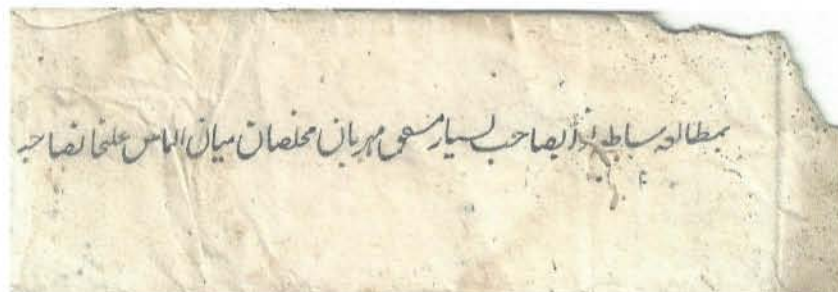 بمطالعه ساطعه نوابصاحب بسیار مشفق مهربان مخلصان میان الماس علیخانصاحب